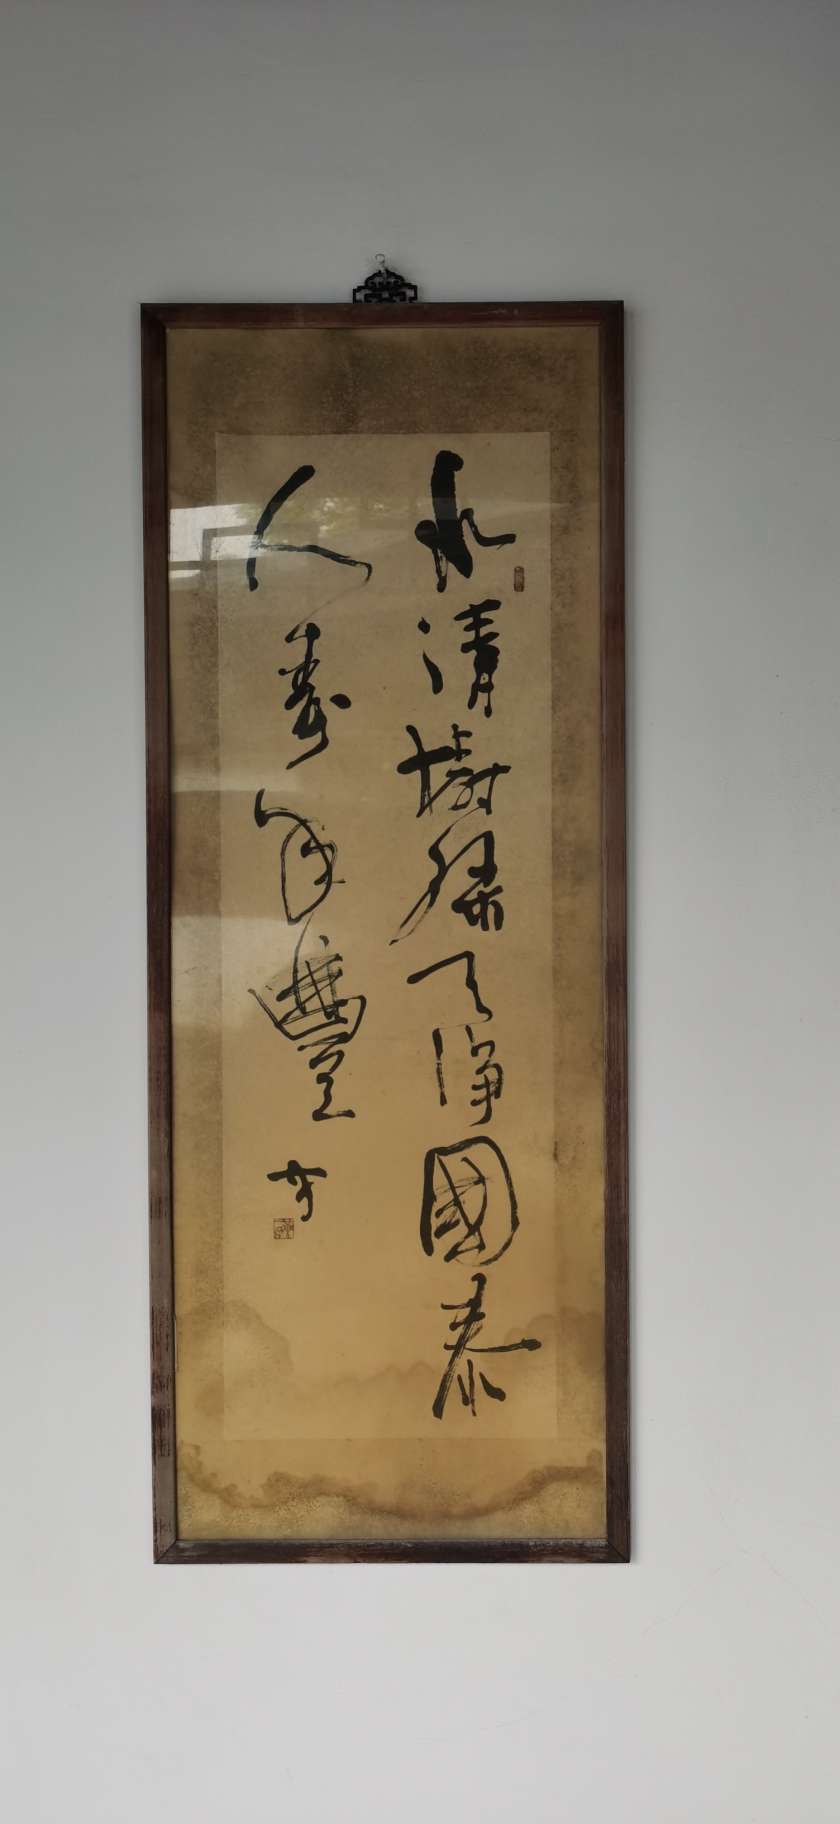 水清樹綠天淨國泰
人壽年豐